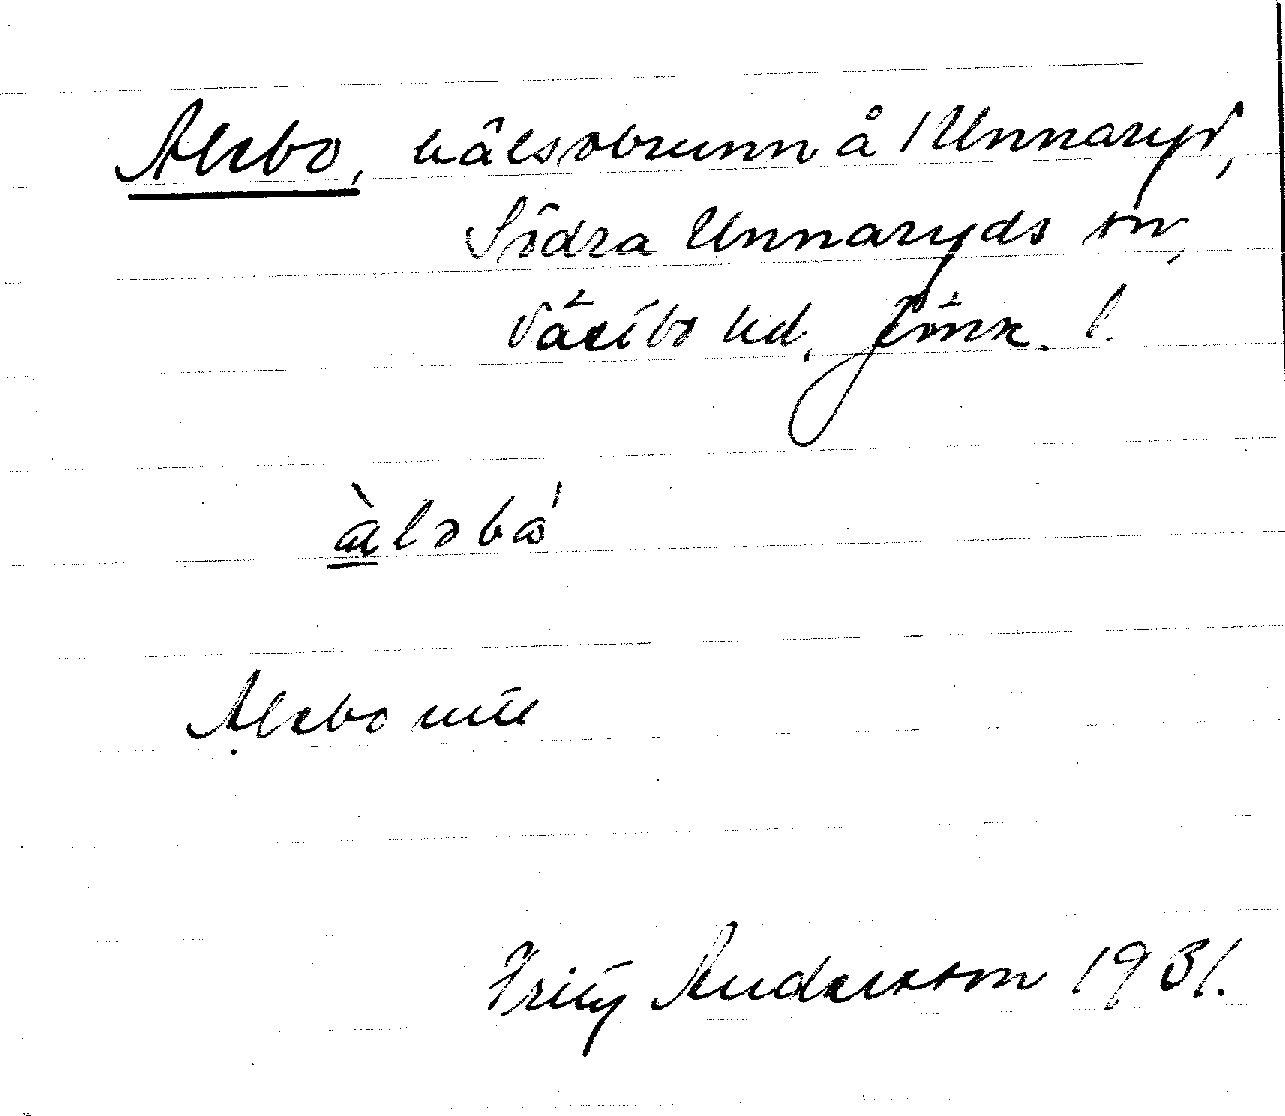 Alebo, hälsobrunn å 1 Unnaryd,
Södra Unnaryds sn,
Västbo hd. Jönk. l.
àləbå'
Alebo
Fritz Andersson 1931.